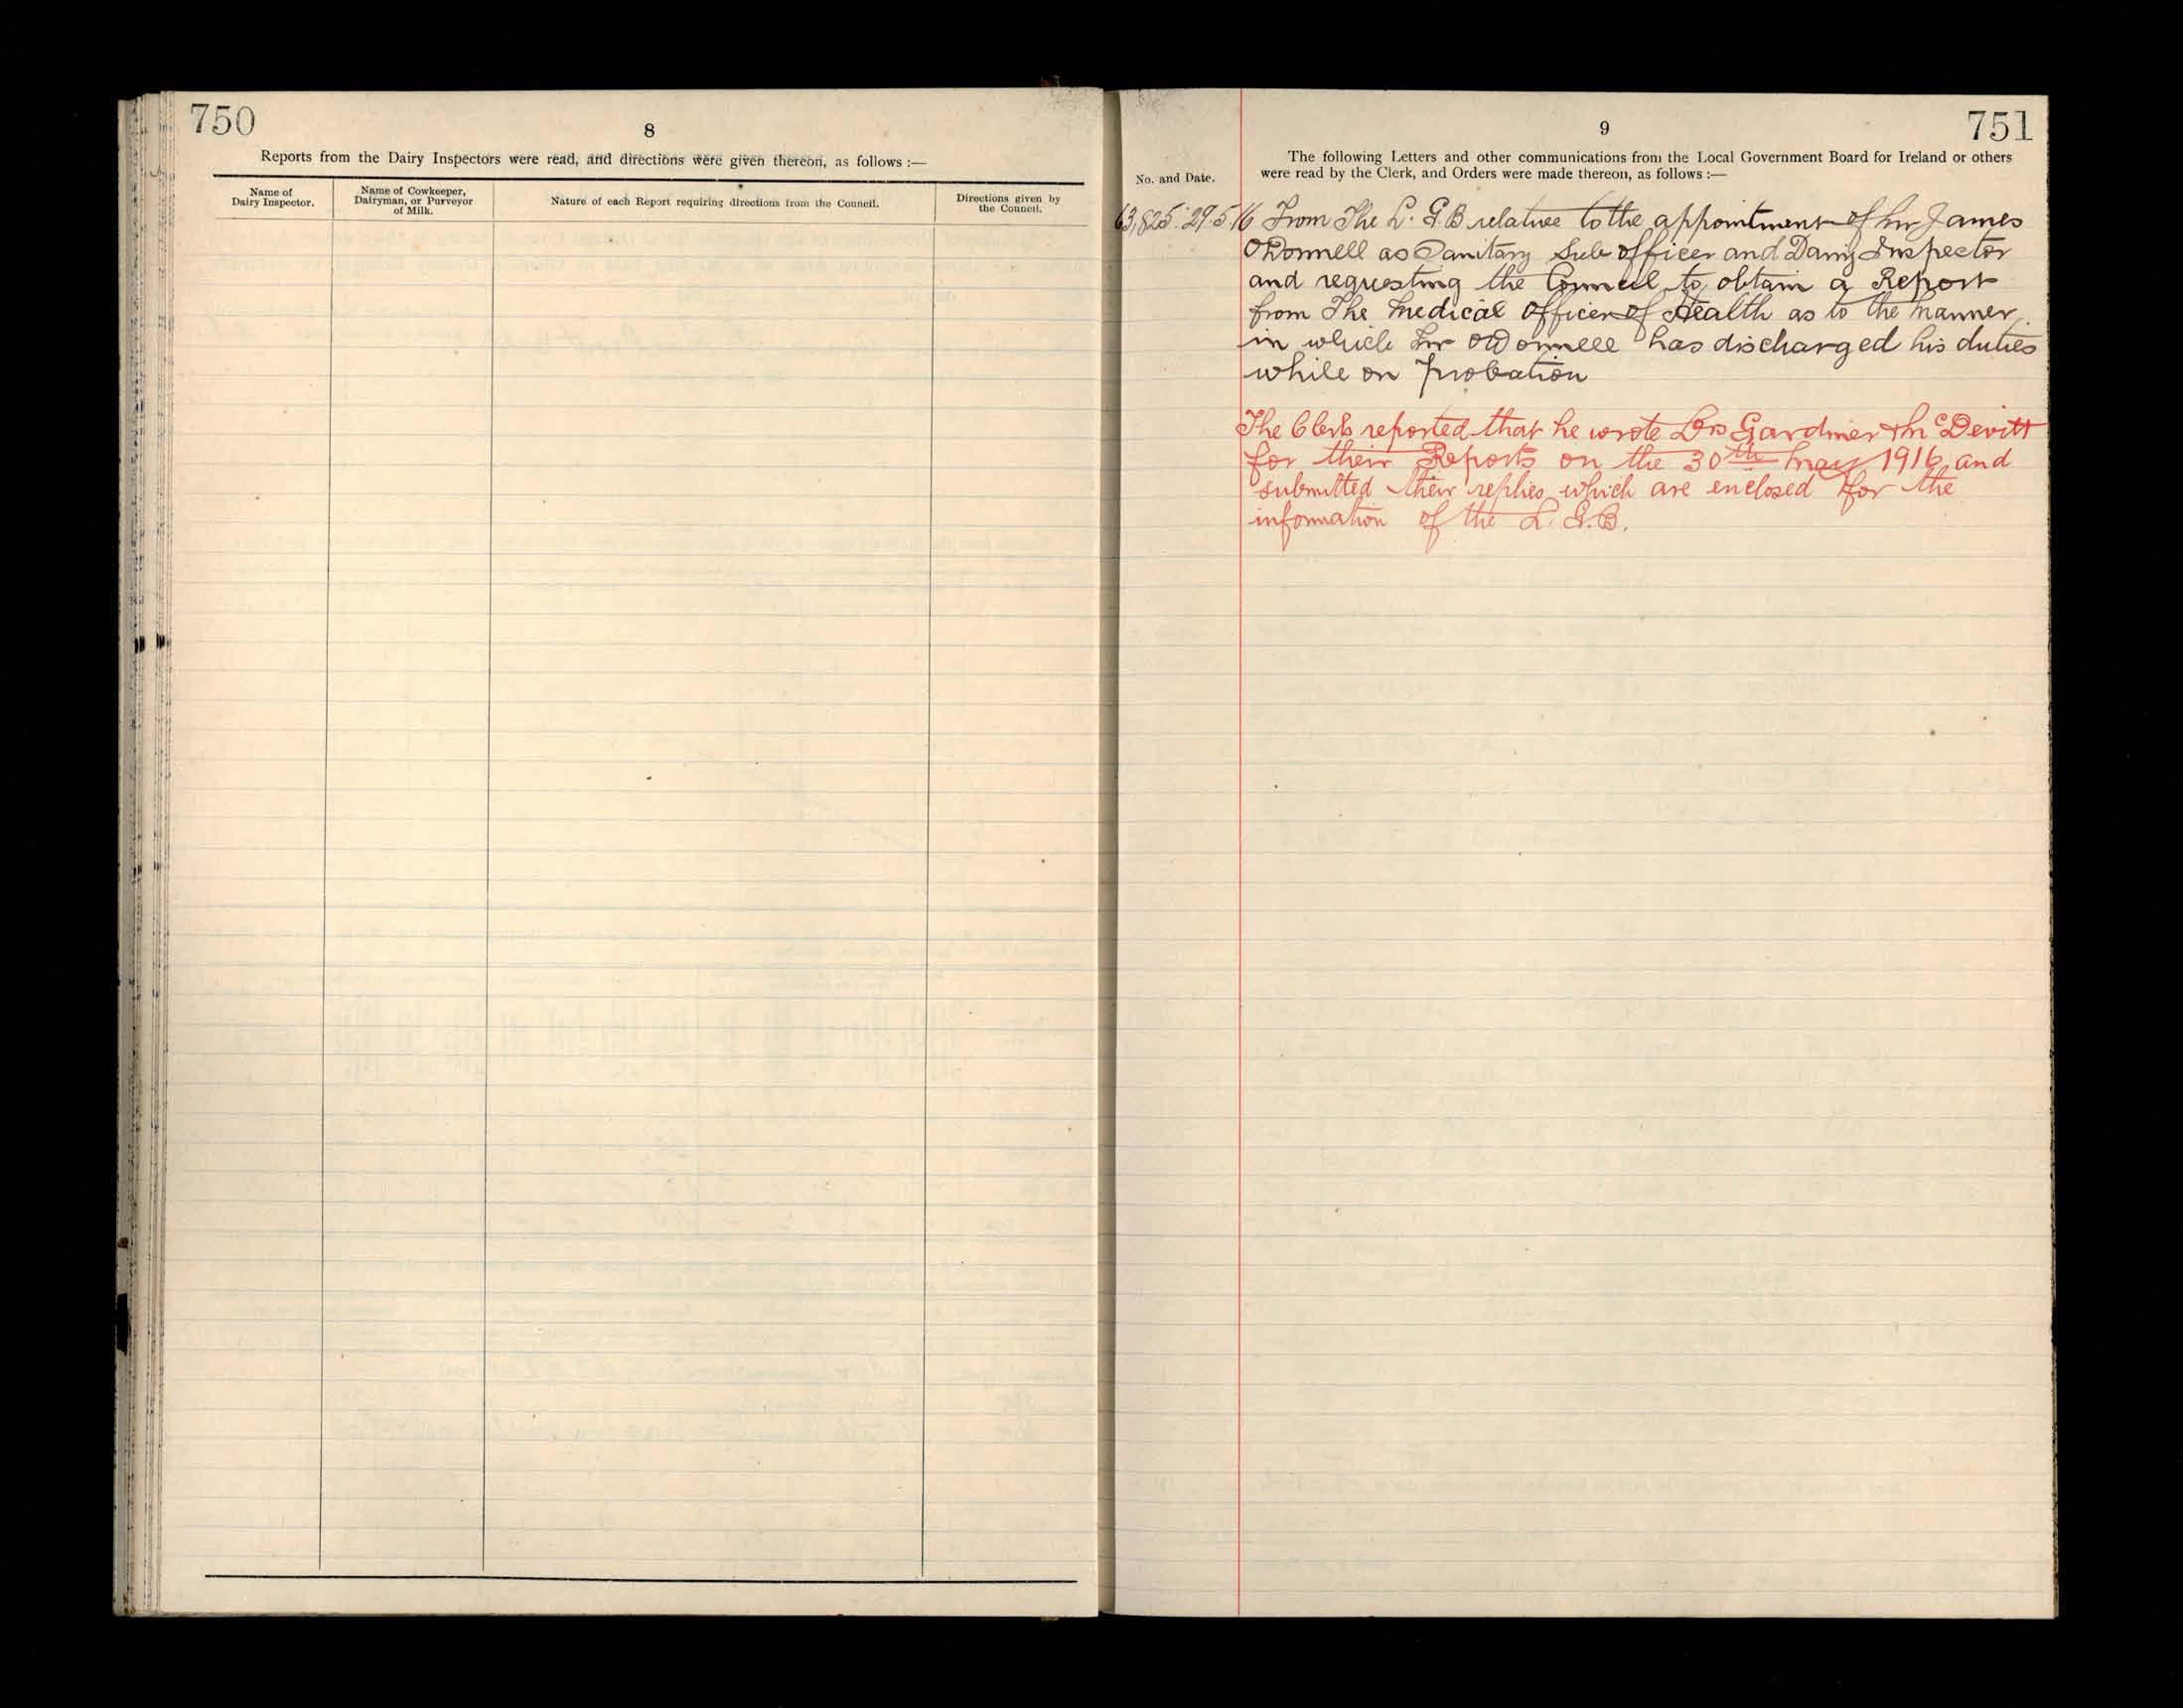 750
8
Reports from the Dairy Inspectors were read, and directions were given thereon, as follows :—
Name of
Dairy Inspector.
Name of Cowkeeper,
Dairyman, or Purveyor
of Milk.
Nature of each Report requiring directions from the Council.
Directions given by
the Council.
9
751
No. and Date.
The following Letters and other communications from the Local Government Board for Ireland or others
were read by the Clerk, and Orders were made thereon, as follows :—
63,825. 29.5.16 From The L. G. B relative to the appointment of Mr James
O'Donnell as Sanitary Sub officer and Dairy Inspector
and requesting the Council to obtain a Report
from The Medical Officer of Health as to the manner
in which Mr O'Donnell has discharged his duties
while on Probation
The Clerk reported that he wrote Drs Gardiner & McDevitt
for their Reports on the 30th May 1916 and
submitted their replies which are enclosed for the
information of the L. G. B.